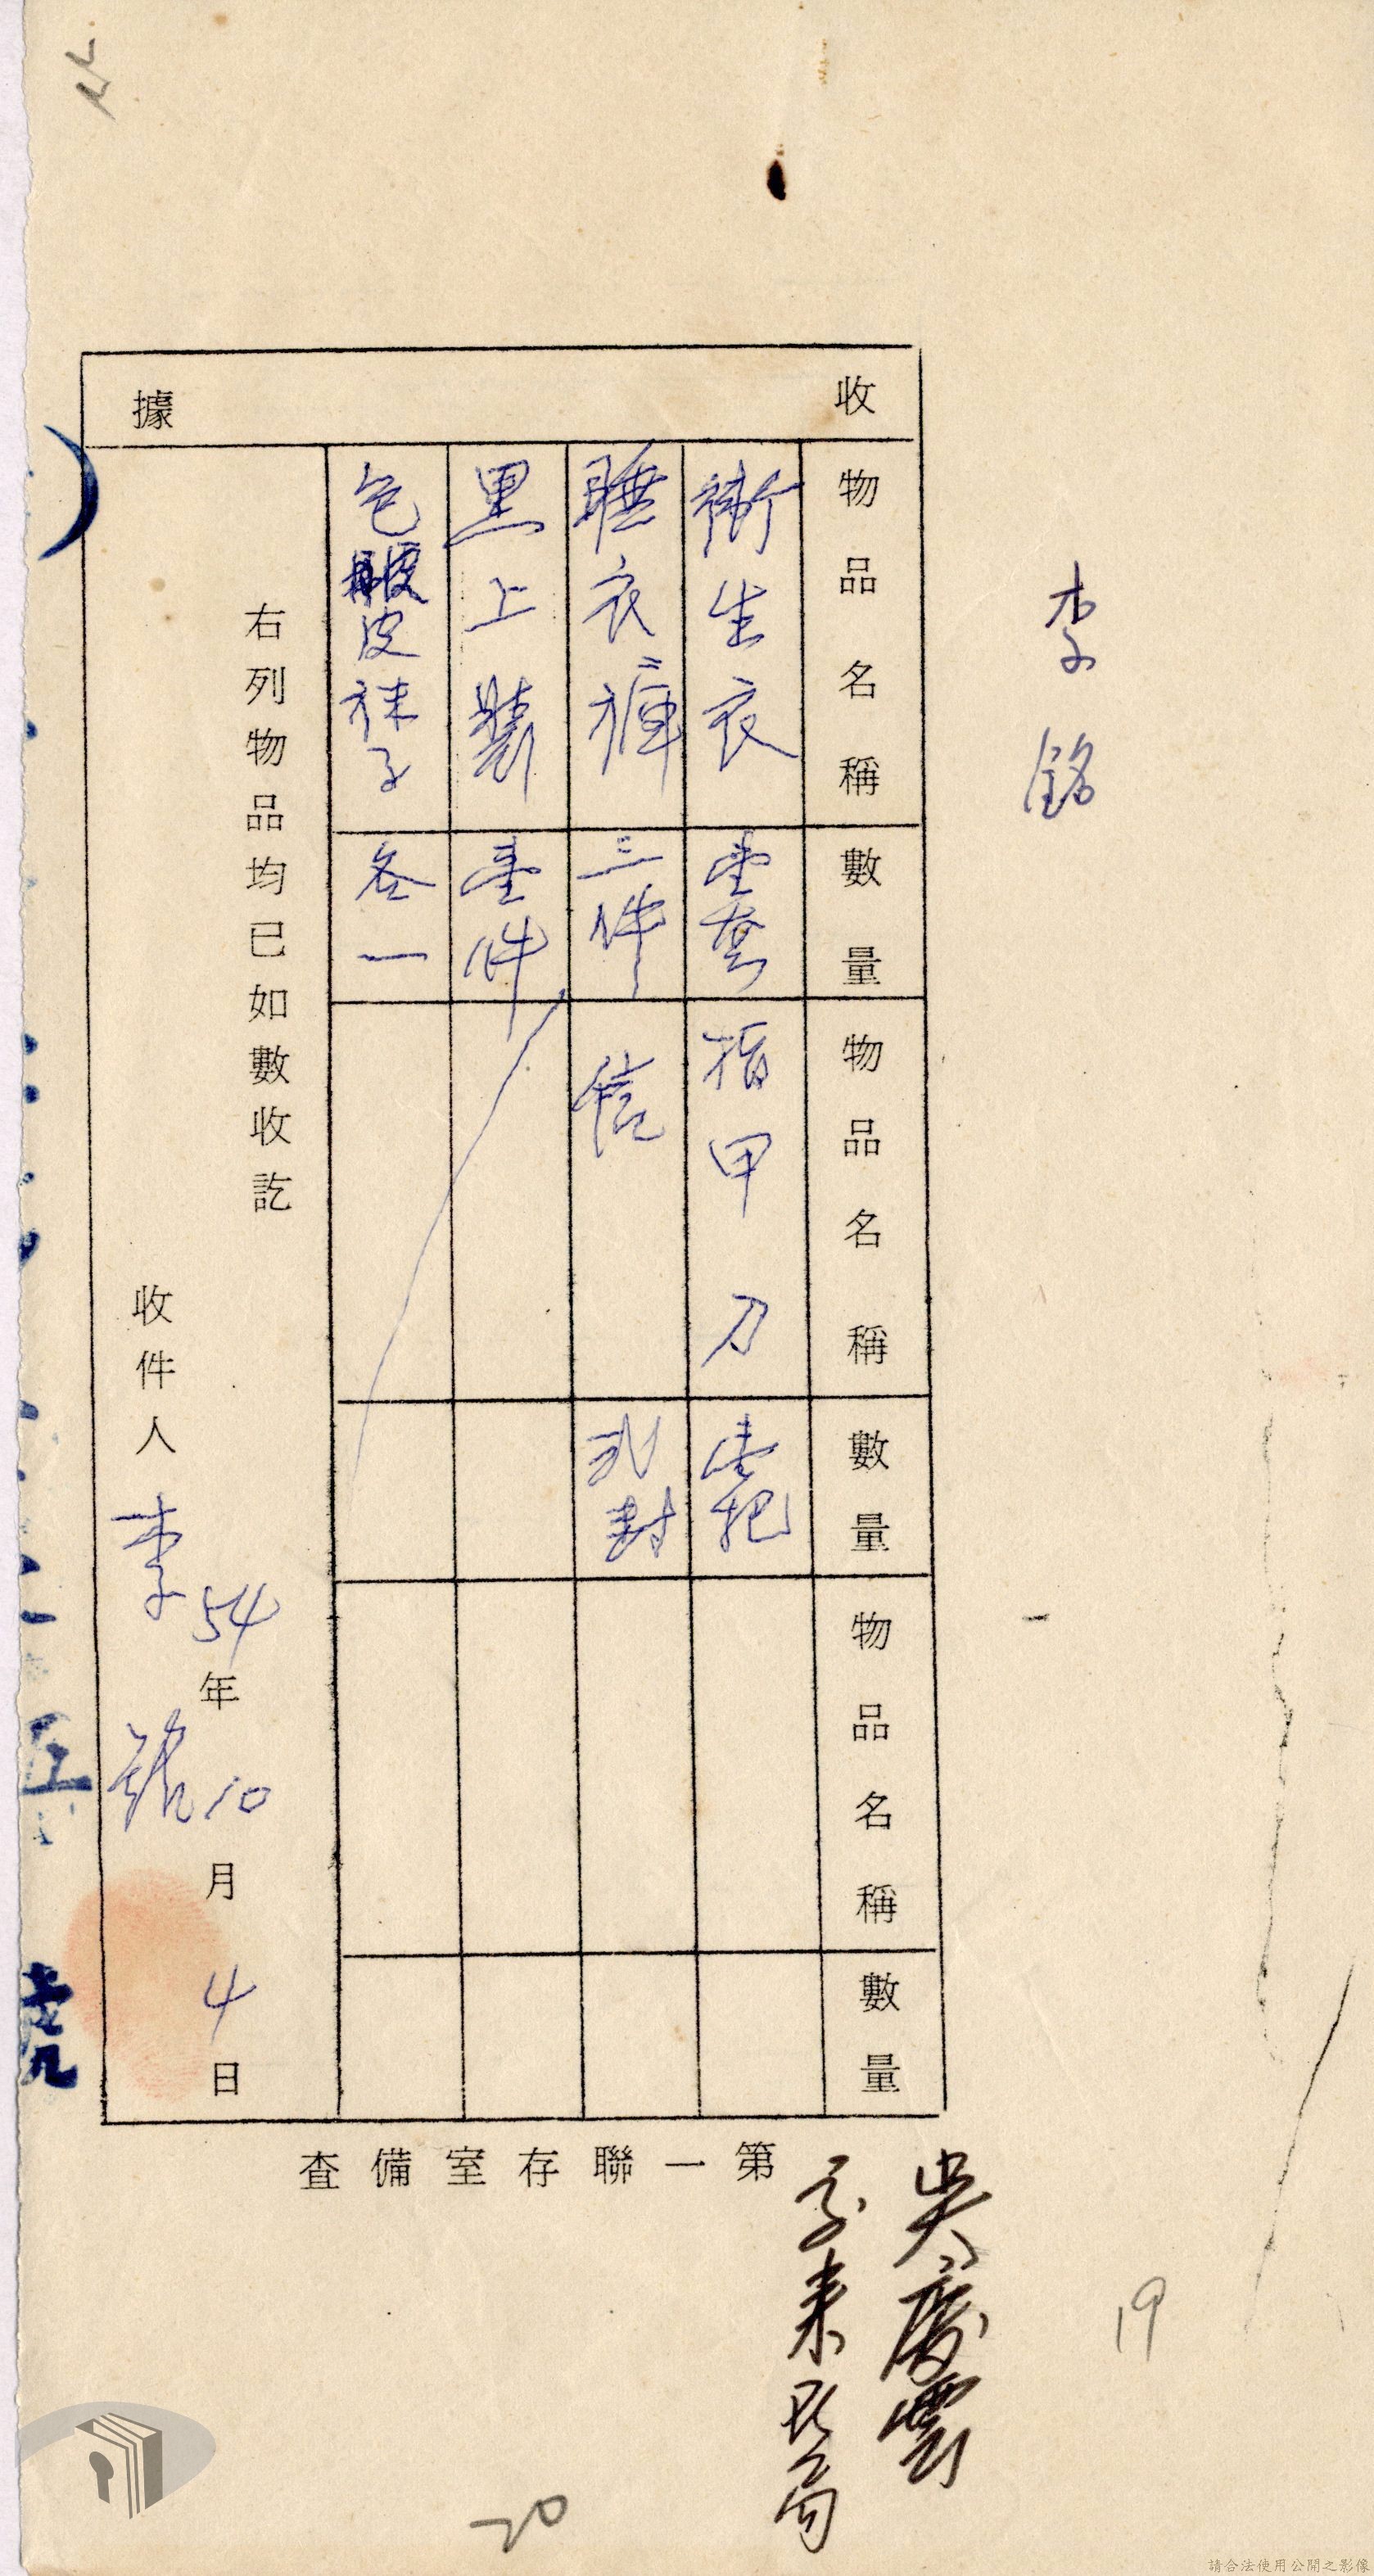 李銘
收據
物品名稱 數量 物品名稱 數量 物品名稱 數量
衛生衣 壹套 指甲刀 壹把
睡衣褲 三件 信 弍封
黑上裝 壹件
包 皮 襪子 各一
右列物品均已如數收訖
54年10月4日
收件人 李
第一聯存室備查
吳慶雲
19
20
請合法使用公開之影像